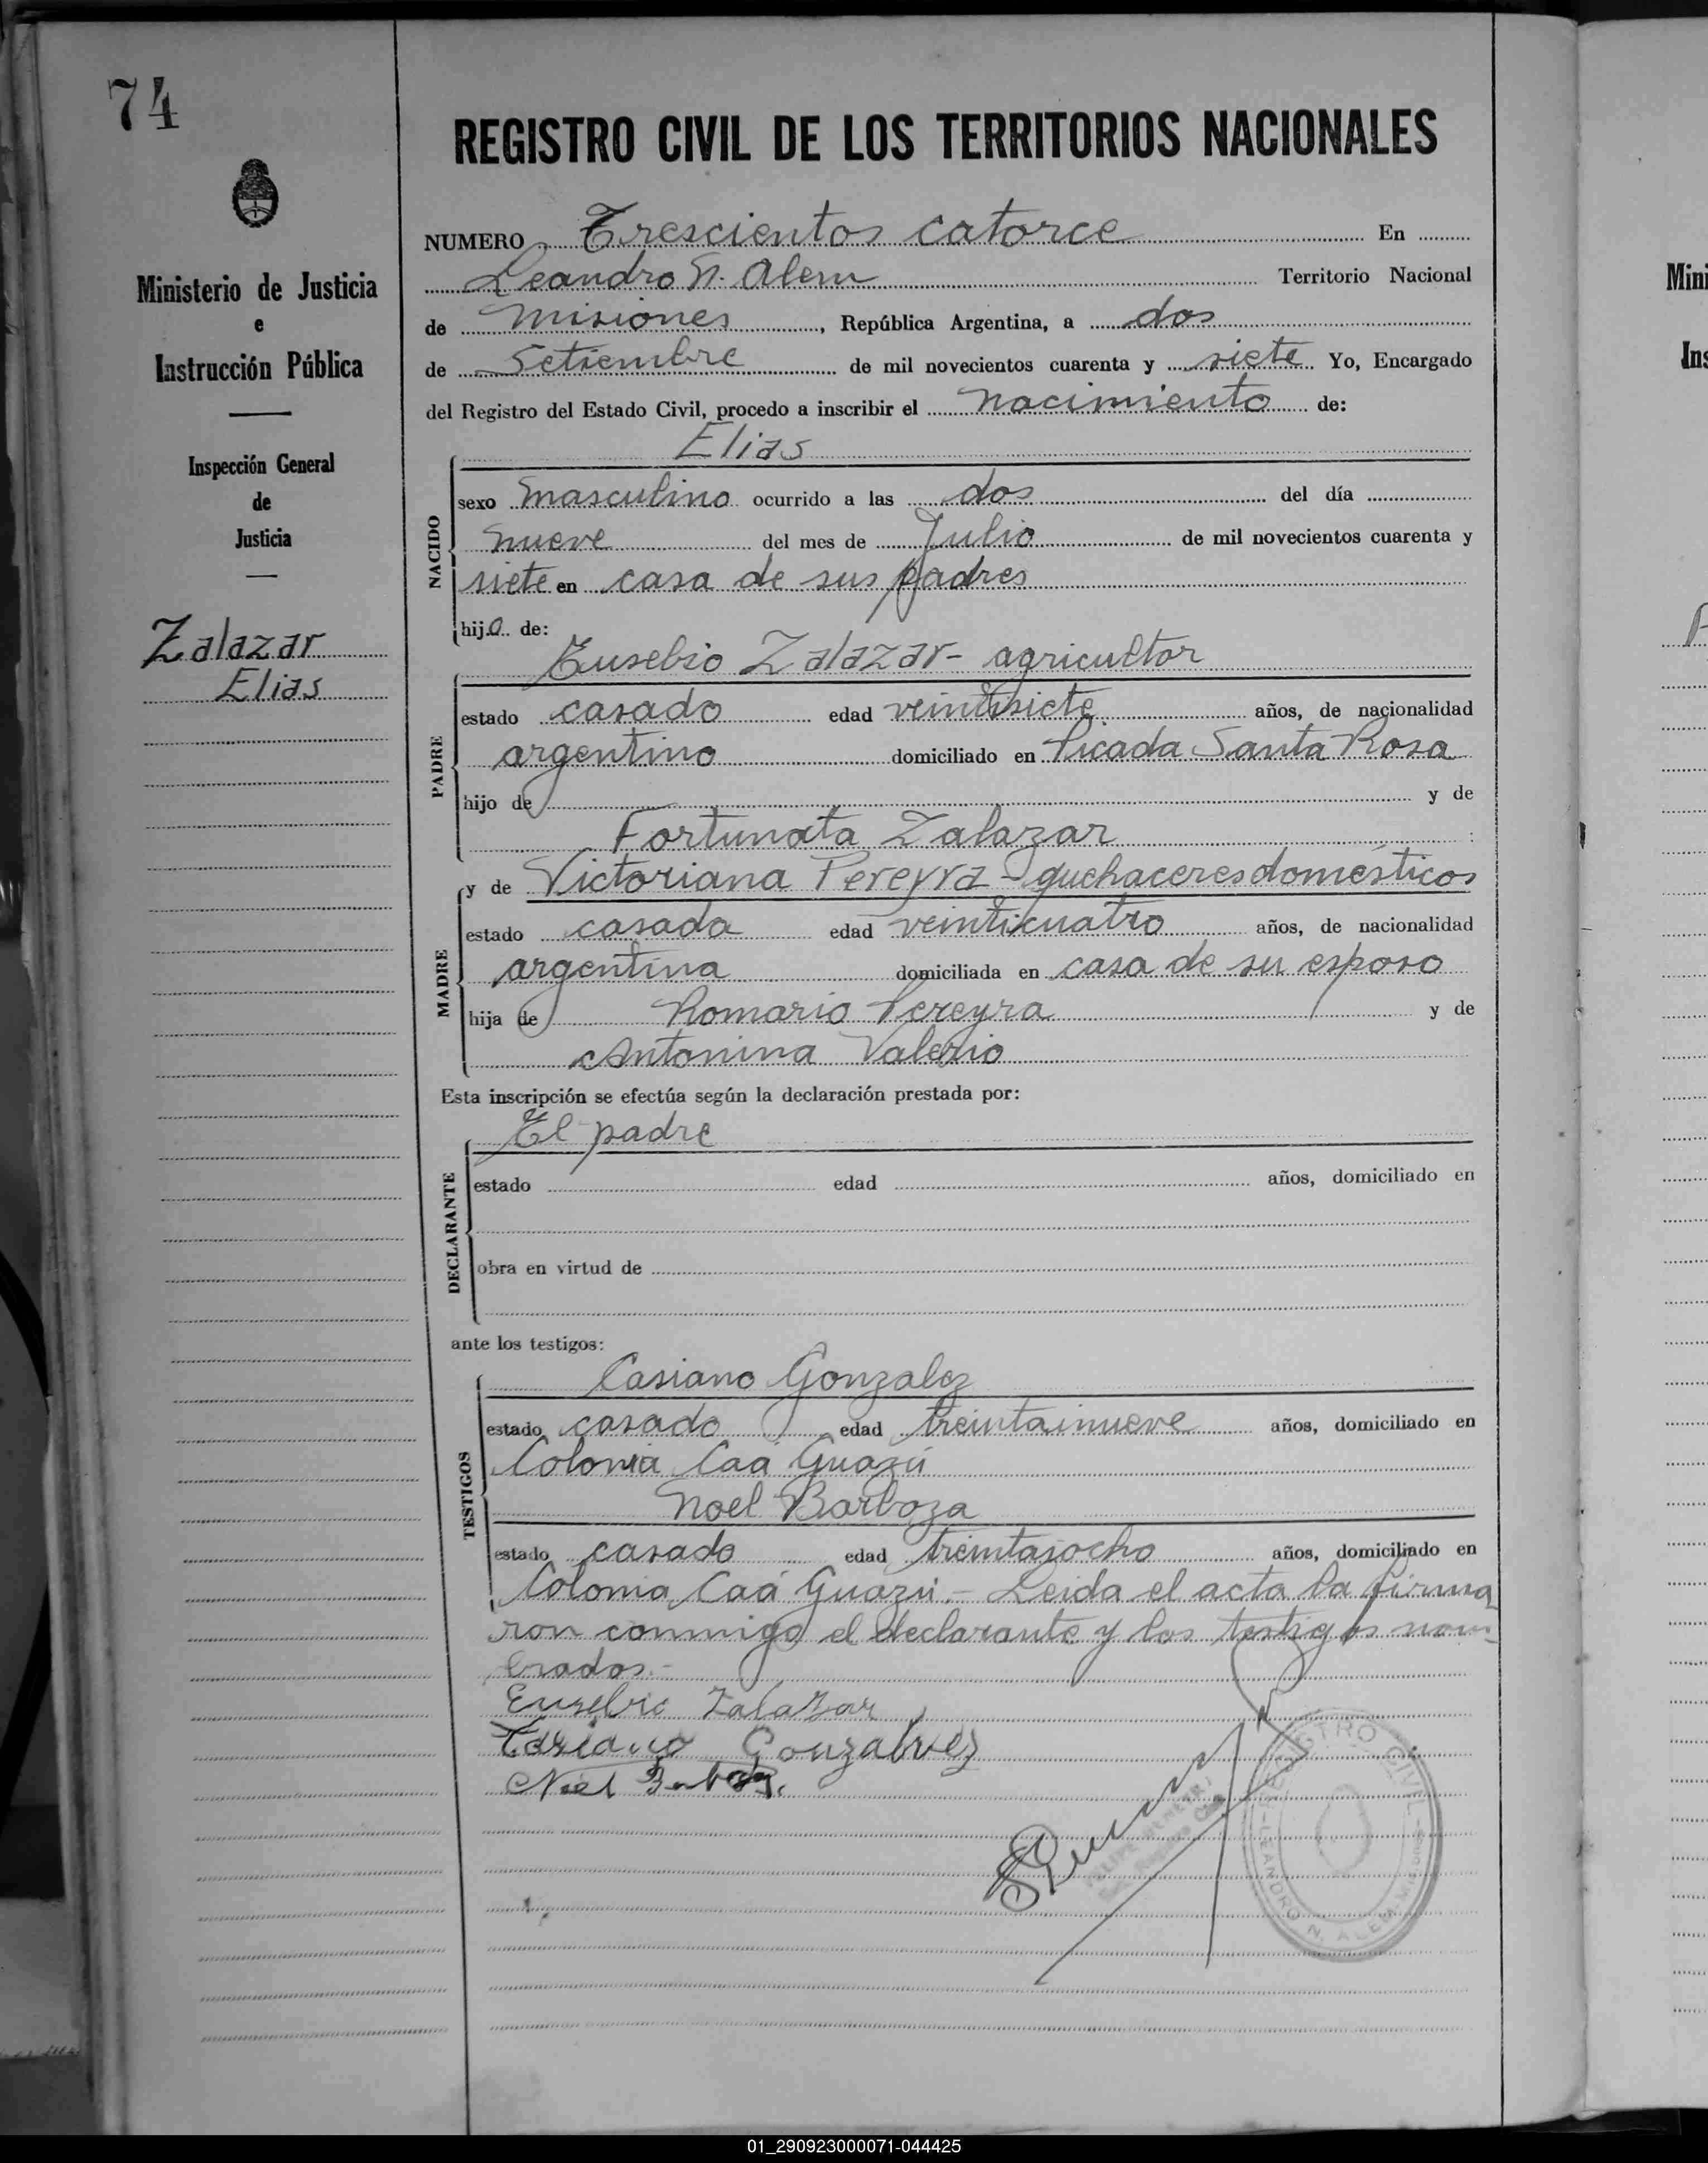 74
REGISTRO CIVIL DE LOS TERRITORIOS NACIONALES
Ministerio de Justicia
e
Instrucción Pública
Inspección General
de
Justicia
Zalazar
Elias
NUMERO Trescientos catorce En
Leandro N. Alem Territorio Nacional
de Misiones, República Argentina, a dos
de Setiembre de mil novecientos cuarenta y siete Yo, Encargado
del Registro del Estado Civil, procedo a inscribir el nacimiento de:
Elias
NACIDO
sexo masculino ocurrido a las dos del día
nueve del mes de Julio de mil novecientos cuarenta y
siete en casa de sus padres
hijo de:
Eusebio Zalazar- agricultor
PADRE
estado casado edad veintisiete años, de nacionalidad
argentino domiciliado en Picada Santa Rosa
hijo de y de
Fortunata Zalazar
y de Victoriana Pereyra - quehaceres domésticos
MADRE
estado casada edad veinticuatro años, de nacionalidad
argentina domiciliada en casa de su esposo
hija de Romario Pereyra y de
Antonina Valerio
Esta inscripción se efectúa según la declaración prestada por:
El padre
DECLARANTE
estado edad años, domiciliado en
obra en virtud de
ante los testigos:
Casiano Gonzalez
TESTIGOS
estado casado edad treintainueve años, domiciliado en
Colonia Caá Guazú
Noel Barboza
estado casado edad treintaiocho años, domiciliado en
Colonia Caá Guazú.- Leida el acta la firma-
ron conmigo el declarante y los testigos nom-
brados.-
Eusebio Zalazar
Casiano Gonzalvez
Noel Barboza
REGISTRO CIVIL
LEANDRO N. ALEM
01_290923000071-044425
Mini
Ins